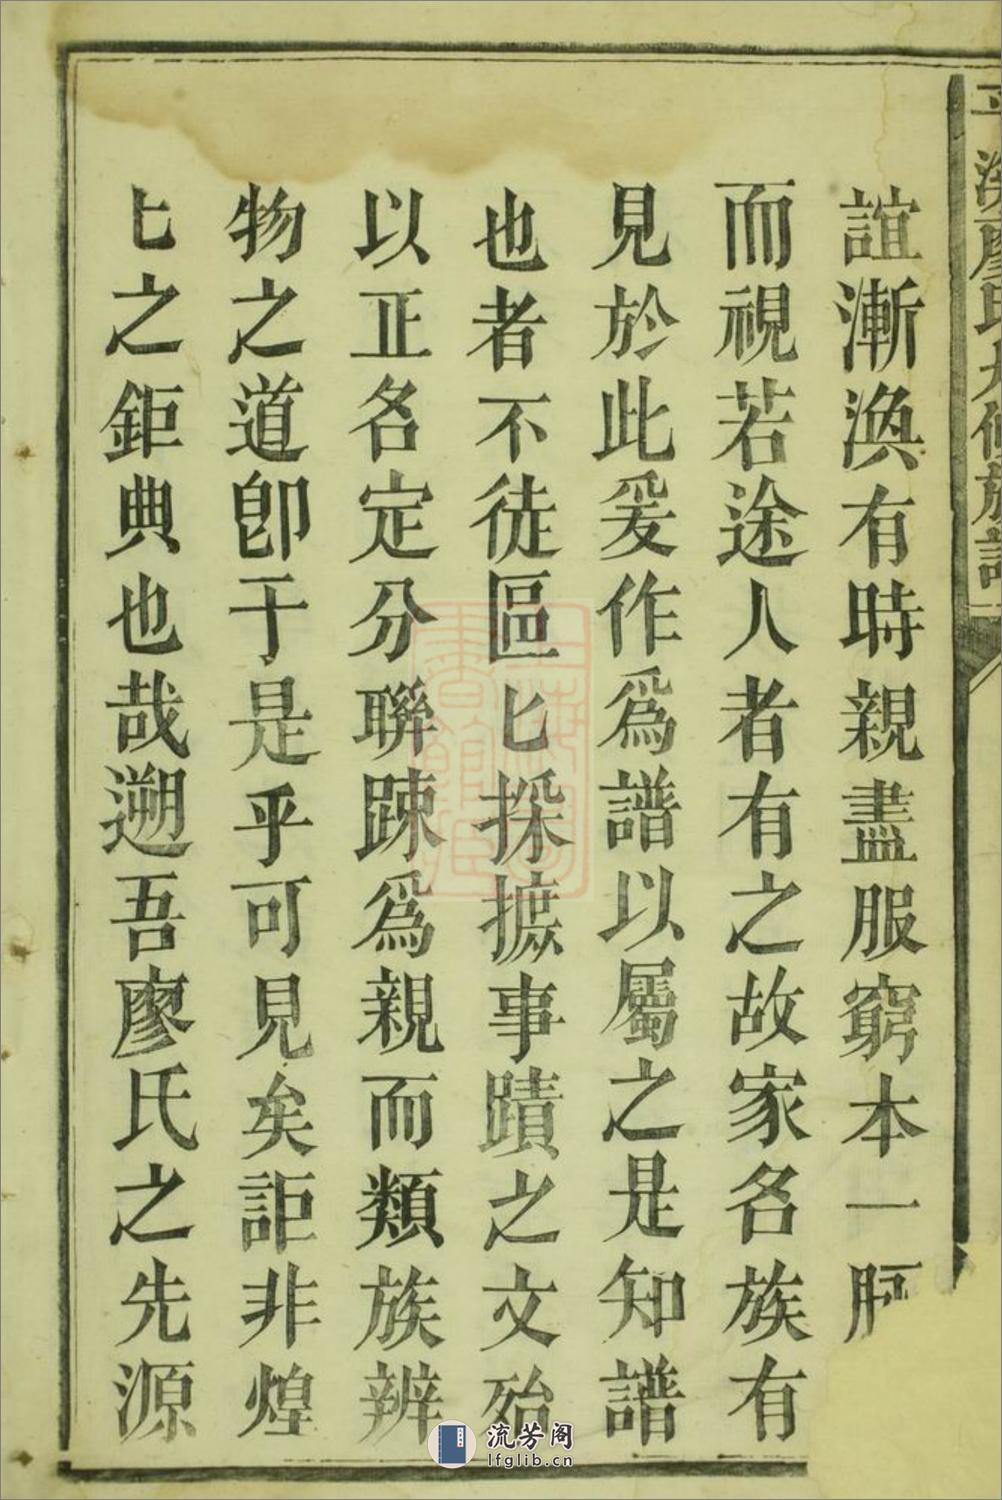 漢廖氏九修族譜
誼漸渙有時親盡服窮本一
而視若途人者有之故家名族有
見於此爰作為譜以屬之是知譜
也者不徒區匕採摭事蹟之文殆
以正名定分聯踈為親而類族辨
物之道卽于是乎可見矣詎非煌
匕之鉅典也哉遡吾廖氏之先源
流芳阁
lfglib.cn